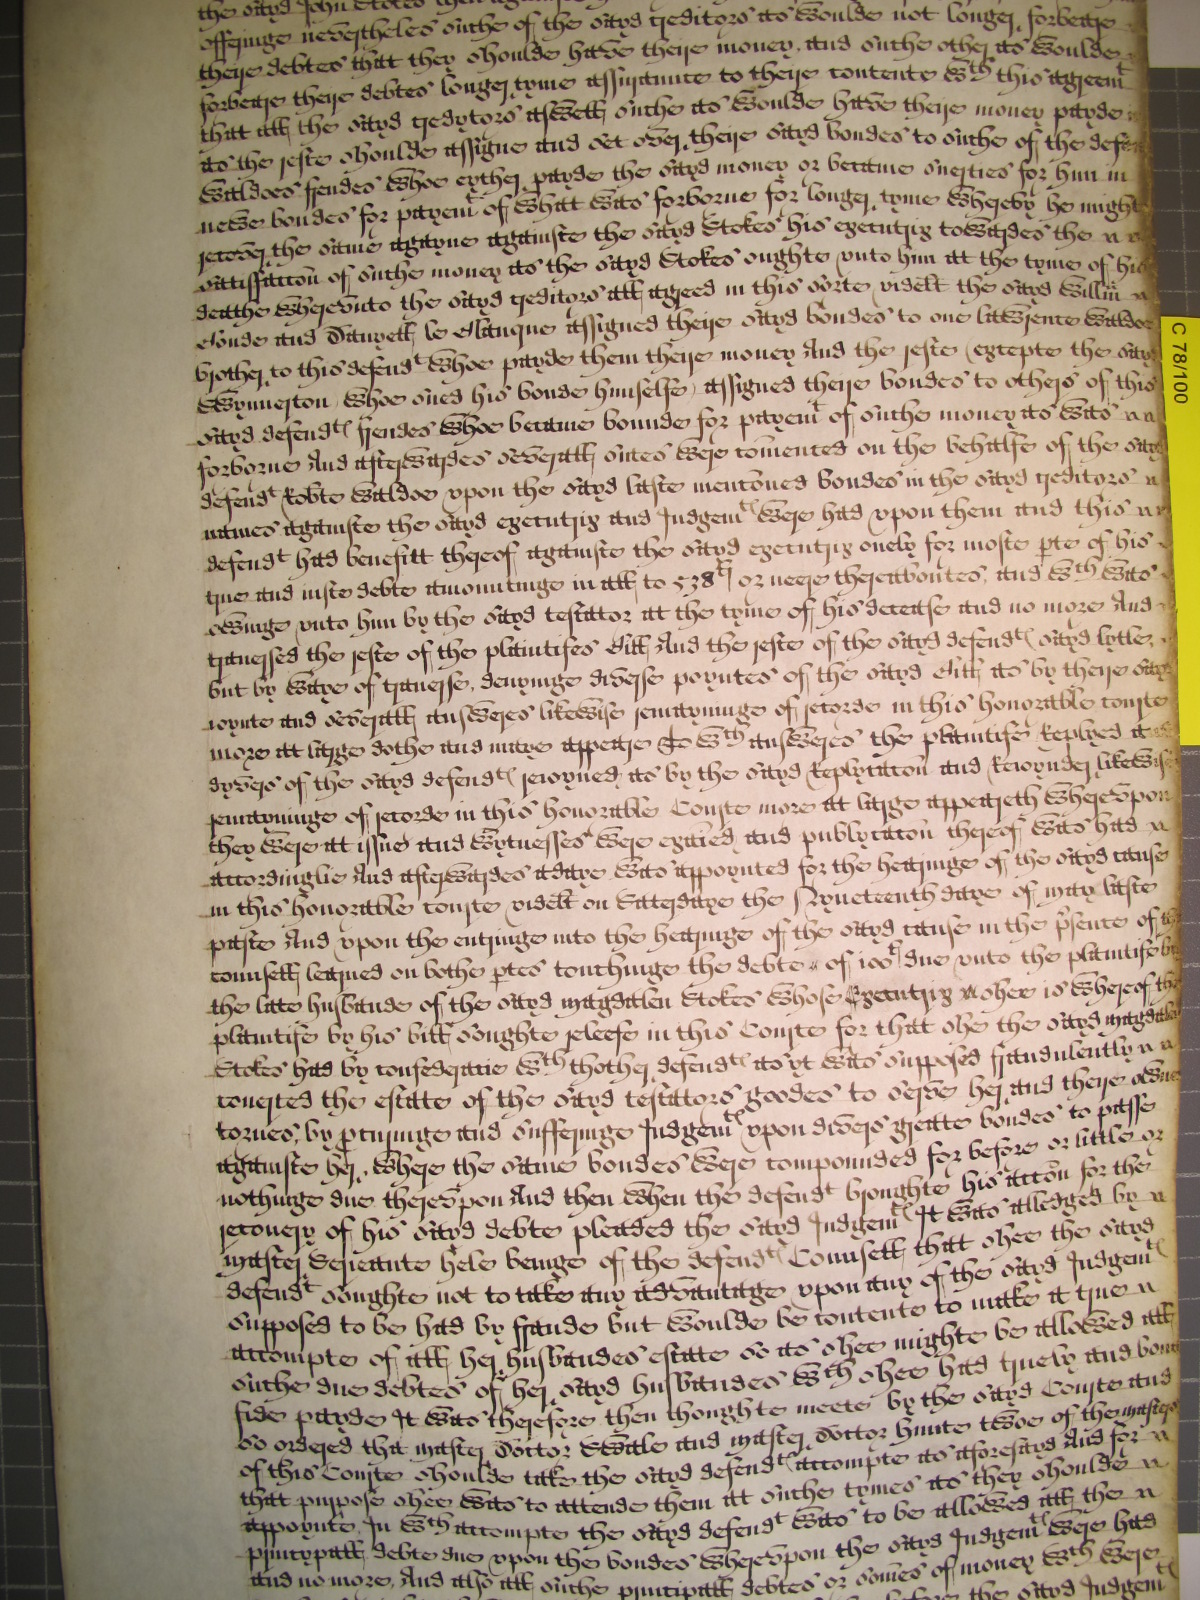 the sayd John Stokes then
offeringe nevertheles suche of the sayd creditors as woulde not longer forbeare
theire debtes that they shoulde have theire money, and suche other as woulde
forbeare theire debtes longer tyme assuraunce to theire contente wth this agreemt
that all the sayd credytors aswell suche as woulde have theire money payde
as the reste shoulde assigne and set over theire sayd bondes to suche of the defendt
Waldoes frendes whoe eyther payde the sayd money or became suerties for him in
newe bondes for paymt of what was forborne for longer tyme whereby he might
recover the same agayne againste the sayd Stokes his executrix towardes the
satisfaccon of suche money as the sayd Stokes oughte unto him at the tyme of his
deathe Whereunto the sayd creditors all agreed in this sorte videlt the sayd Willm
Bonde and Danyell le Blanque assigned theire sayd bondes to one Lawrence Waldoe
brother to this defendt whoe payde them theire money And the reste (excepte the sayd
Swynnerton whoe sued his bonde himselfe) assigned theire bondes to others of this
sayd defendtes frendes whoe became bounde for paymt of suche money as was
forborne And afterwardes severall suites were comenced on the behalfe of the sayd
defendt Robte Waldoe upon the sayd laste mencioned bondes in the sayd creditors
names againste the sayd executrix and Judgemtes were had upon them and this
defendt had benefitt thereof againste the sayd executrix onely for moste pte of his
true and iuste debte amountinge in all to 538li or neere thereaboutes, and wch was
owinge unto him by the sayd testator at the tyme of his decease and no more And
traversed the reste of the plaintifes Bill And the reste of the sayd defendtes sayd lytle,
but by waye of traverse, denyinge diverse poyntes of the sayd Bill as by theire sayd
ioynte and severall answeres likewise remayninge of recorde in this honorable courte
more at large dothe and maye appeare To wch answeres the plaintife Replyed and
dyvers of the sayd defendtes reioyned, as by the sayd Replycacon and Reioynder likewise
remayninge of recorde in this honorable Courte more at large appeareth Whereupon
they were at issue and wytnesses were exaied and publycacon thereof was had
accordinglie And afterwardes a daye was appoynted for the hearinge of the sayd cause
in this honorable courte videlt on Satterdaye the Nyneteenth daye of may laste
paste And upon the entringe into the hearinge of the sayd cause in the psence of the
councell learned on bothe ptes touchinge the debte of 100li due unto the plaintife by
the late husbande of the sayd Magdalen Stokes whose Executrix shee is whereof the
plaintife by his bill soughte releefe in this Courte for that she the sayd Magdalen
Stokes had by confederacie wth thother defendtes as yt was supposed fraudulently
converted the estate of the sayd testators goodes to serve her and theire owne
tornes, by pcuringe and sufferinge Judgemtes upon divers greate bondes to passe
againste her, where the same bondes were compounded for before or little or
nothinge due thereupon And then when the defendt broughte his accon for the
recovery of his sayd debte pleaded the sayd Judgemtes It was alledged by
master Serieante Hele beinge of the defendtes Counsell, that shee the sayd
defendt soughte not to take any advantage upon any of the sayd Judgemtes
supposed to be had by fraude but woulde be contente to make a true
accompte of all her husbandes estate so as shee mighte be allowed all
suche due debtes of her sayd husbandes wch shee had truely and bona
fide payde It was therefore then thoughte meete by the sayd Courte and
so ordered that master Doctor Swale and master Doctor Hunte twoe of the masters
of this Courte shoulde take the sayd defendtes accompte as aforesayd And for
that purpose shee was to attende them at suche tymes as they shoulde
appoynte, In wch accompte the sayd defendt was to be allowed all the
principall debte due upon the bondes whereupon the sayd Judgemtes were had
and no more, And also all suche principall debtes or somes of money wch were
the sayd Judgemtes
C 78/100